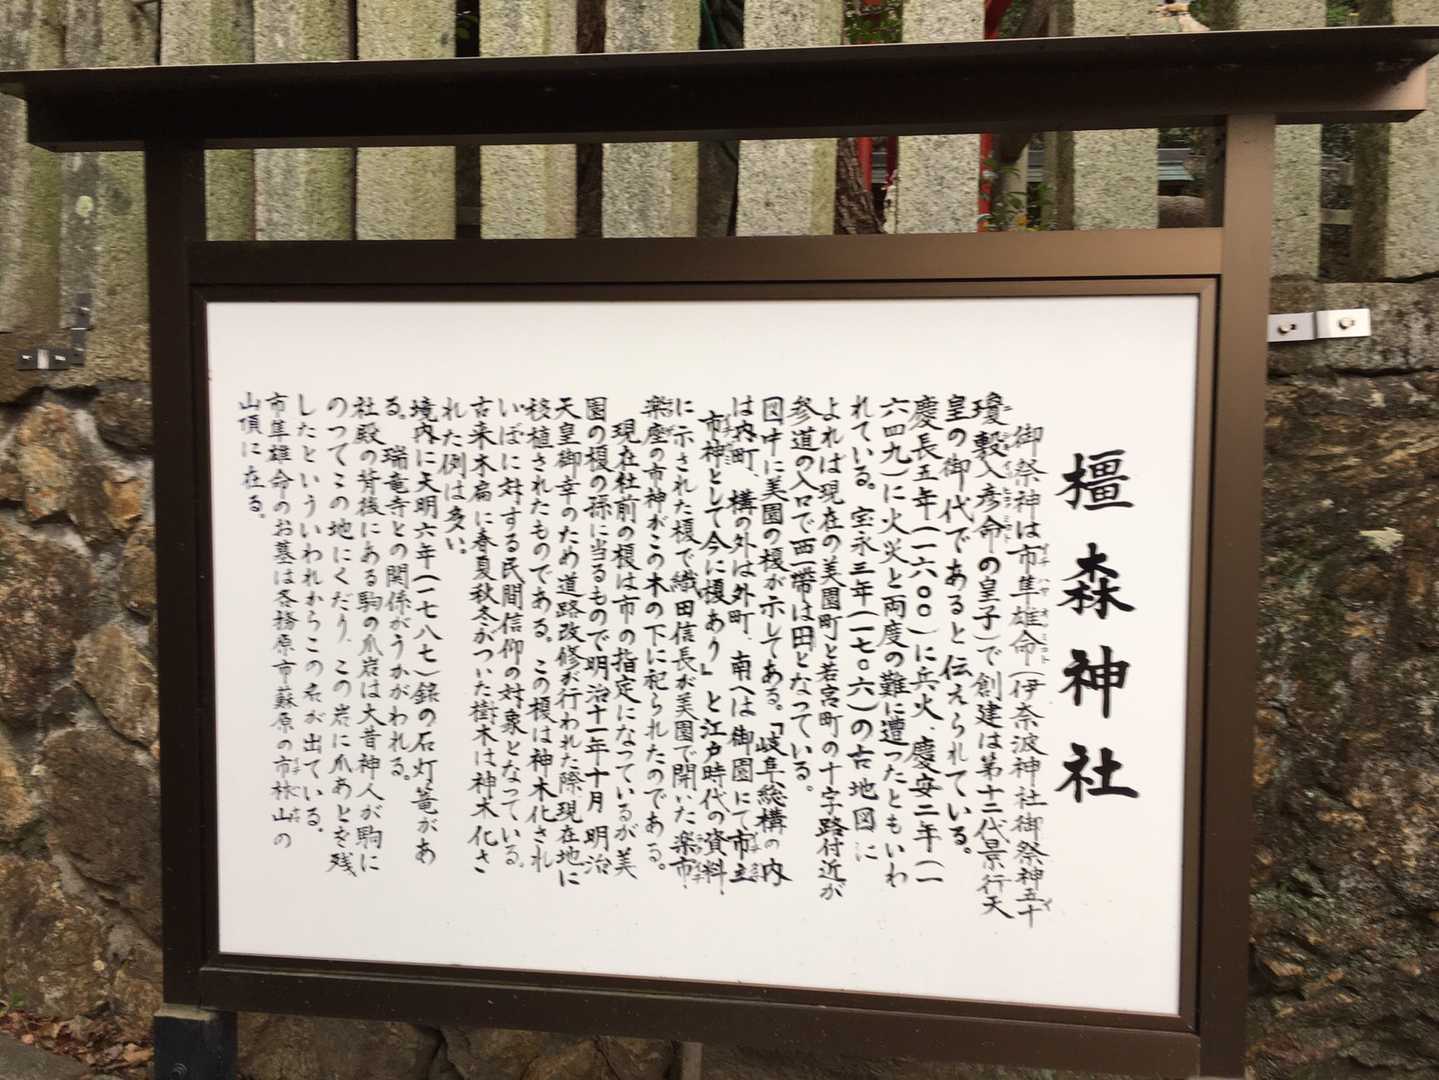 橿森神社
御祭神は市隼雄命(伊奈波神社御祭神五十
瓊敷入彦命の皇子)で創建は第十二代景行天
皇の御代であると伝えられている。
慶長五年(一六〇〇)に兵火、慶安二年(一
六四九)に火災と両度の難に遭ったともいわ
れている。宝永三年(一七〇六)の古地図に
よれば現在の美園町と若宮町の十字路付近が
参道の入口で西一帯は田となっている。
図中に美園の榎が示してある。「岐阜総構の内
は内町、構の外は外町、南へは御園にて市立
市神として今に榎あり」と江戸時代の資料、
に示された榎で織田信長が美園で開いた楽市・
楽座の市神がこの木の下に祀られたのである。
現在社前の榎は市の指定になっているが美
園の榎の孫に当るもので明治十一年十月明治
天皇御幸のため道路改修が行われた際現在地に
移植されたものである。この榎は神木化され
いぼに対する民間信仰の対象となっている。
古来木扁に春夏秋冬がついた樹木は神木化さ
れた例は多い。
境内に天明六年(一七八七)銘の石灯篭があ
る。瑞竜寺との関係がうかがわれる。
社殿の背後にある駒の爪岩は大昔神人が駒に
のってこの地にくだり、この岩に爪あとを残
したといういわれからこの名が出ている。
市隼雄命のお墓は各務原市蘇原の市杁山の
山頂に在る。